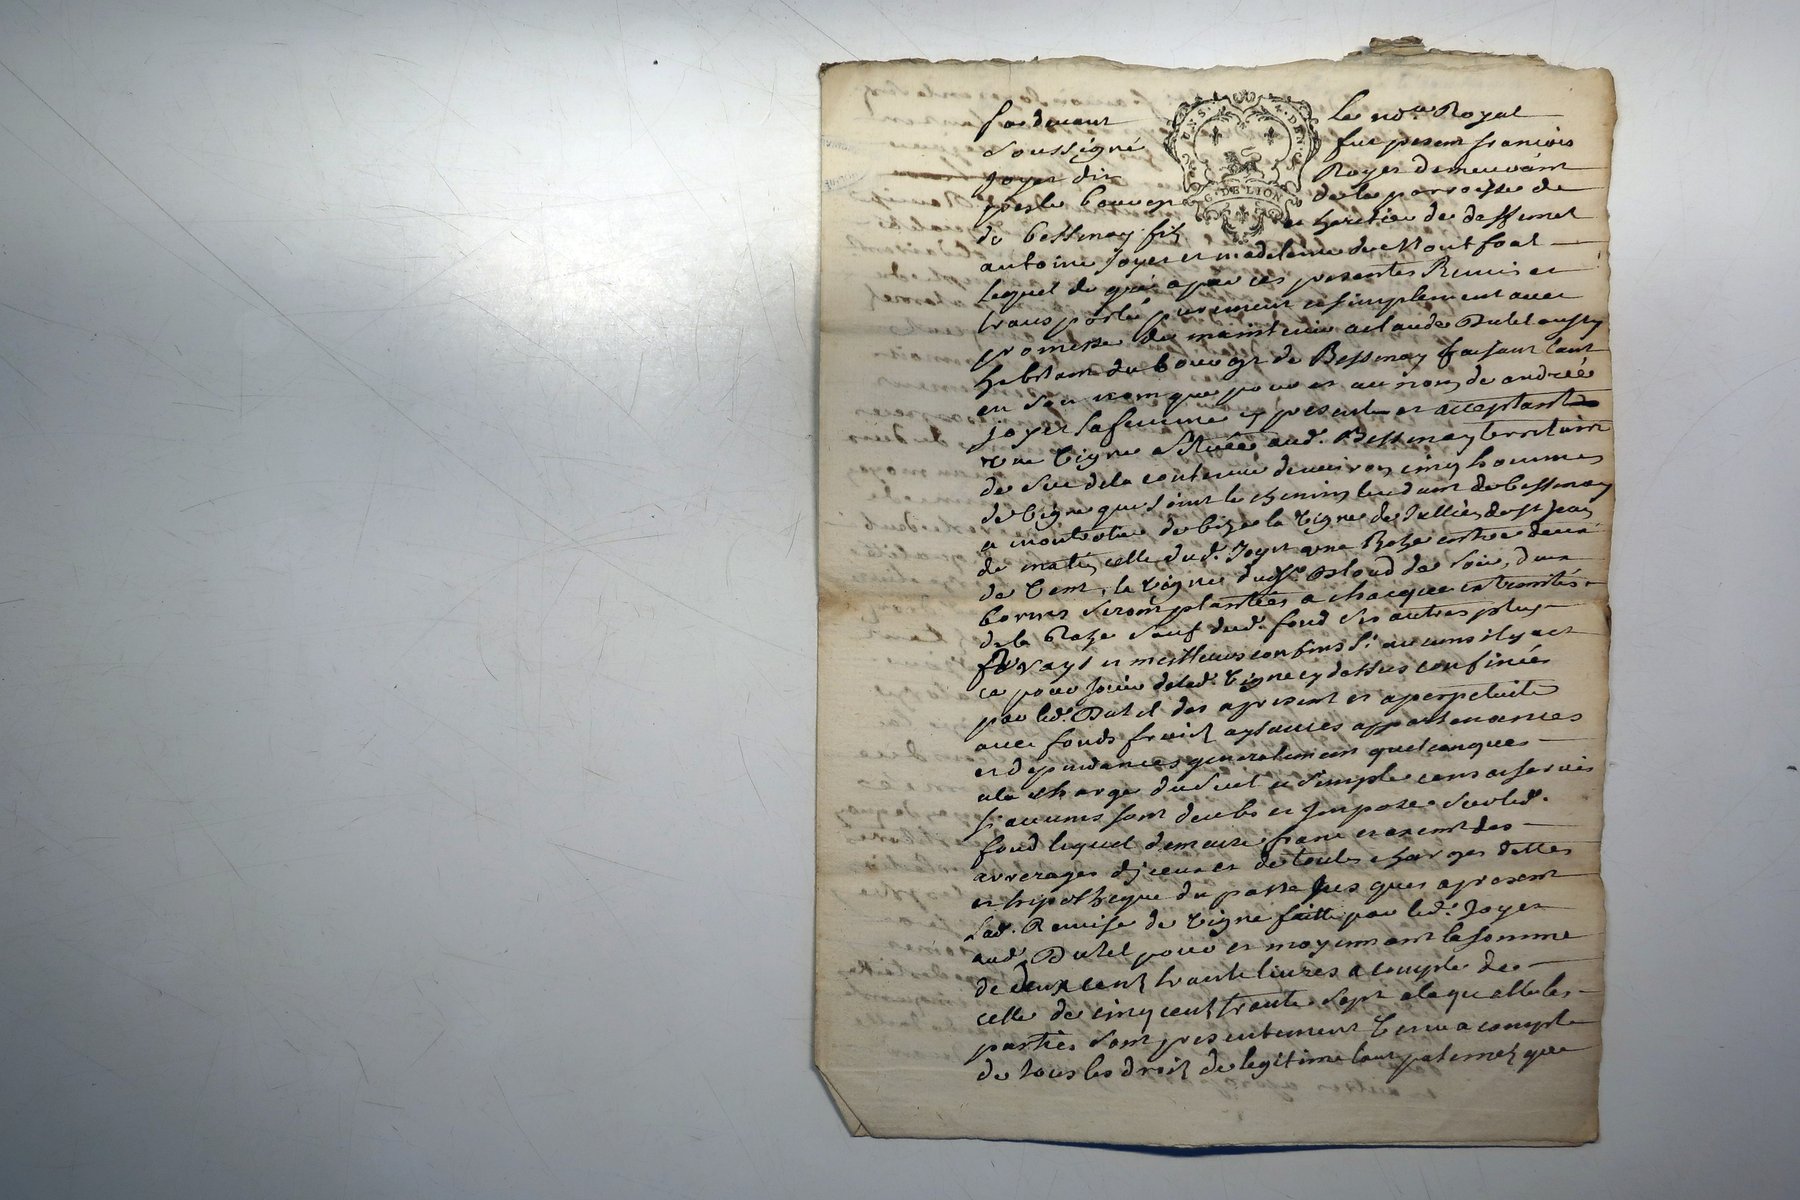 Pardevant le no.re Royal
Soussigné fut present francois
Joyet dit Royer demeurant
de la parroisse de
de Bessenay fils et heritier de deffunct
antoine Joyet et madelaine de Montfort
Lequel de gré a par ces presentes Remis et
transporté purement et simplement avec
promesse de maintenir a claude Dutel
habitant du bourg de Bessenay faisant tant
en son nom que pour et au nom de andrée
joyet sa femme cy presente et acceptante
une vigne située aud. Bessenay territoire
de de la contenue d'environ cinq hommes
de vigne que joint le chemin tendant de bessenay
a de bize la vigne de de St Jean
de matin celle dud. Joyet une Raze entre deux
de vent, la vigne dud. de soir, deux
bornes seront plantées a chacque extremités
de la Raze sauf dud. fond ses autres plus
vrays et meilleurs confins si aucuns il y a et
ce pour jouir de lad. vigne cy dessus confinée
par led. Dutel des apresent et a perpetuité
avec fonds fruits aysances appartenances
et dependances generalement quelconques
a la charge du seul et simple cens et servis
si aucuns sont deubs et Imposé sur led.
fond lequel demeure franc et exempt des
arrerages d'iceux et de toutes charges dettes
et hipotheque du passé Jusques apresent
Lad. Remise de vigne faitte par led. Joyet
aud. Dutel pour et moyennant la somme
de deux cents trante livres a compte de
celle de cinq cents trante sept a laquelle les
parties sont presentement venue a compte
de tous les droits de legitime tant paternels que
DE LION